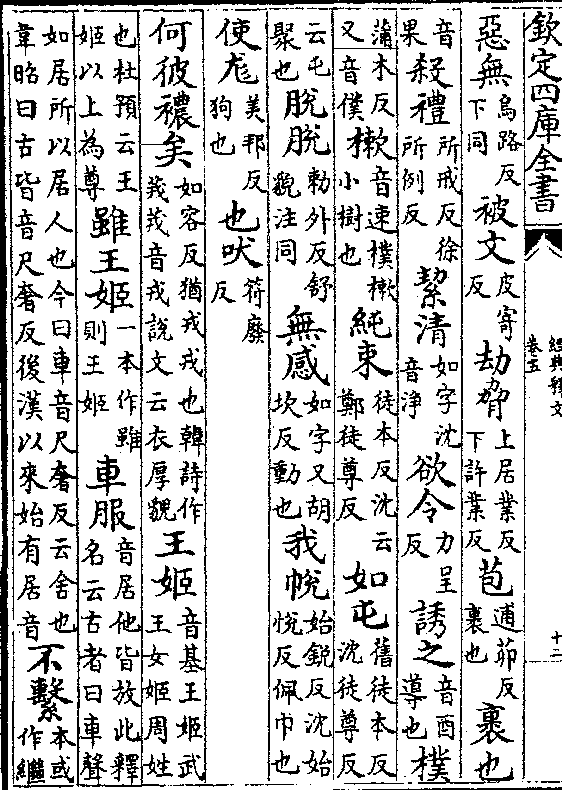 欽定四庫全書 經典釋文 卷五 十二
惡無烏路反下同被文皮寄反劫脅上居業反下許業反苞逋茆反裹也裹也
音果殺禮所戒反徐所例反絜清如字沈音淨欲令力呈反誘之音酉導也樸
蒲木反又音僕樕音速樸樕小樹也純束徒本反沈云鄭徒尊反如屯舊徒本反沈徒尊反
云屯聚也脫脫勅外反舒貌注同無感如字又胡坎反動也我帨始銳反沈始悅反佩巾也
使尨美邦反狗也也吠符廢反
何彼襛矣如容反猶戎戎也韓詩作茙茙音戎說文云衣厚貌王姬音基王姬武王女姬周姓
也杜預云王姬以上為尊雖王姬一本作雖則王姬車服音居他皆放此釋名云古者曰車聲
如居所以居人也今曰車音尺奢反云舍也韋昭曰古皆音尺奢反後漢以來始有居音不繫本或作繼